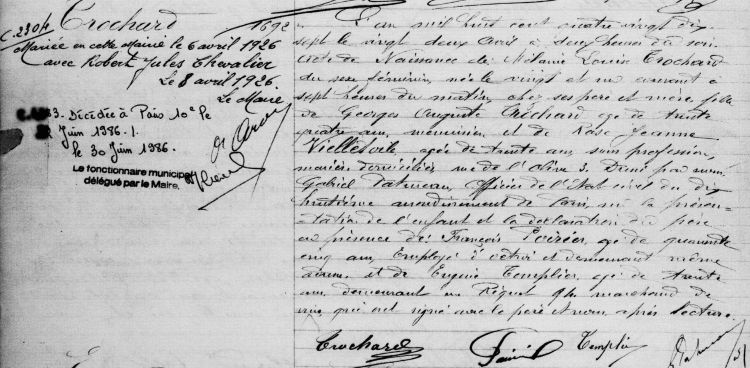 Crochard 1692
C.2304
Mariée en cette Mairie le 6 avril 1926
avec Robert Jules Chevalier
Le 8 avril 1926.
Le Maire
3. Décédée à Paris 10e le
Juin 1986.
le 30 Juin 1986.
Le fonctionnaire municipal
délégué par le Maire,
L'an mil huit cent quatre vingt dix
sept le vingt deux avril à deux heures du soir
acte de Naissance de Mélanie Louise Crochard
du sexe féminin, née le vingt et un courant à
sept heures du matin, chez ses père et mère, fille
de Georges Auguste Crochard, âgé de trente
quatre ans, menuisier, et de Rose Jeanne
âgée de trente ans, sans profession,
mariés domiciliés rue de l'olive 3. Dressé par nous,
Gabriel officier de l'Etat civil du dix
huitième arrondissement de Paris, sur la présen-
tation de l'enfant et la déclaration du père
en présence de: François Poirier, âgé de quarante
cinq ans, Employé d'octroi et demeurant même
et de Eugène Templier, âgé de trente
ans, demeurant rue Riquet 94 marchand de
vins, qui ont signé avec le père et nous après lecture.
Crochard Templier